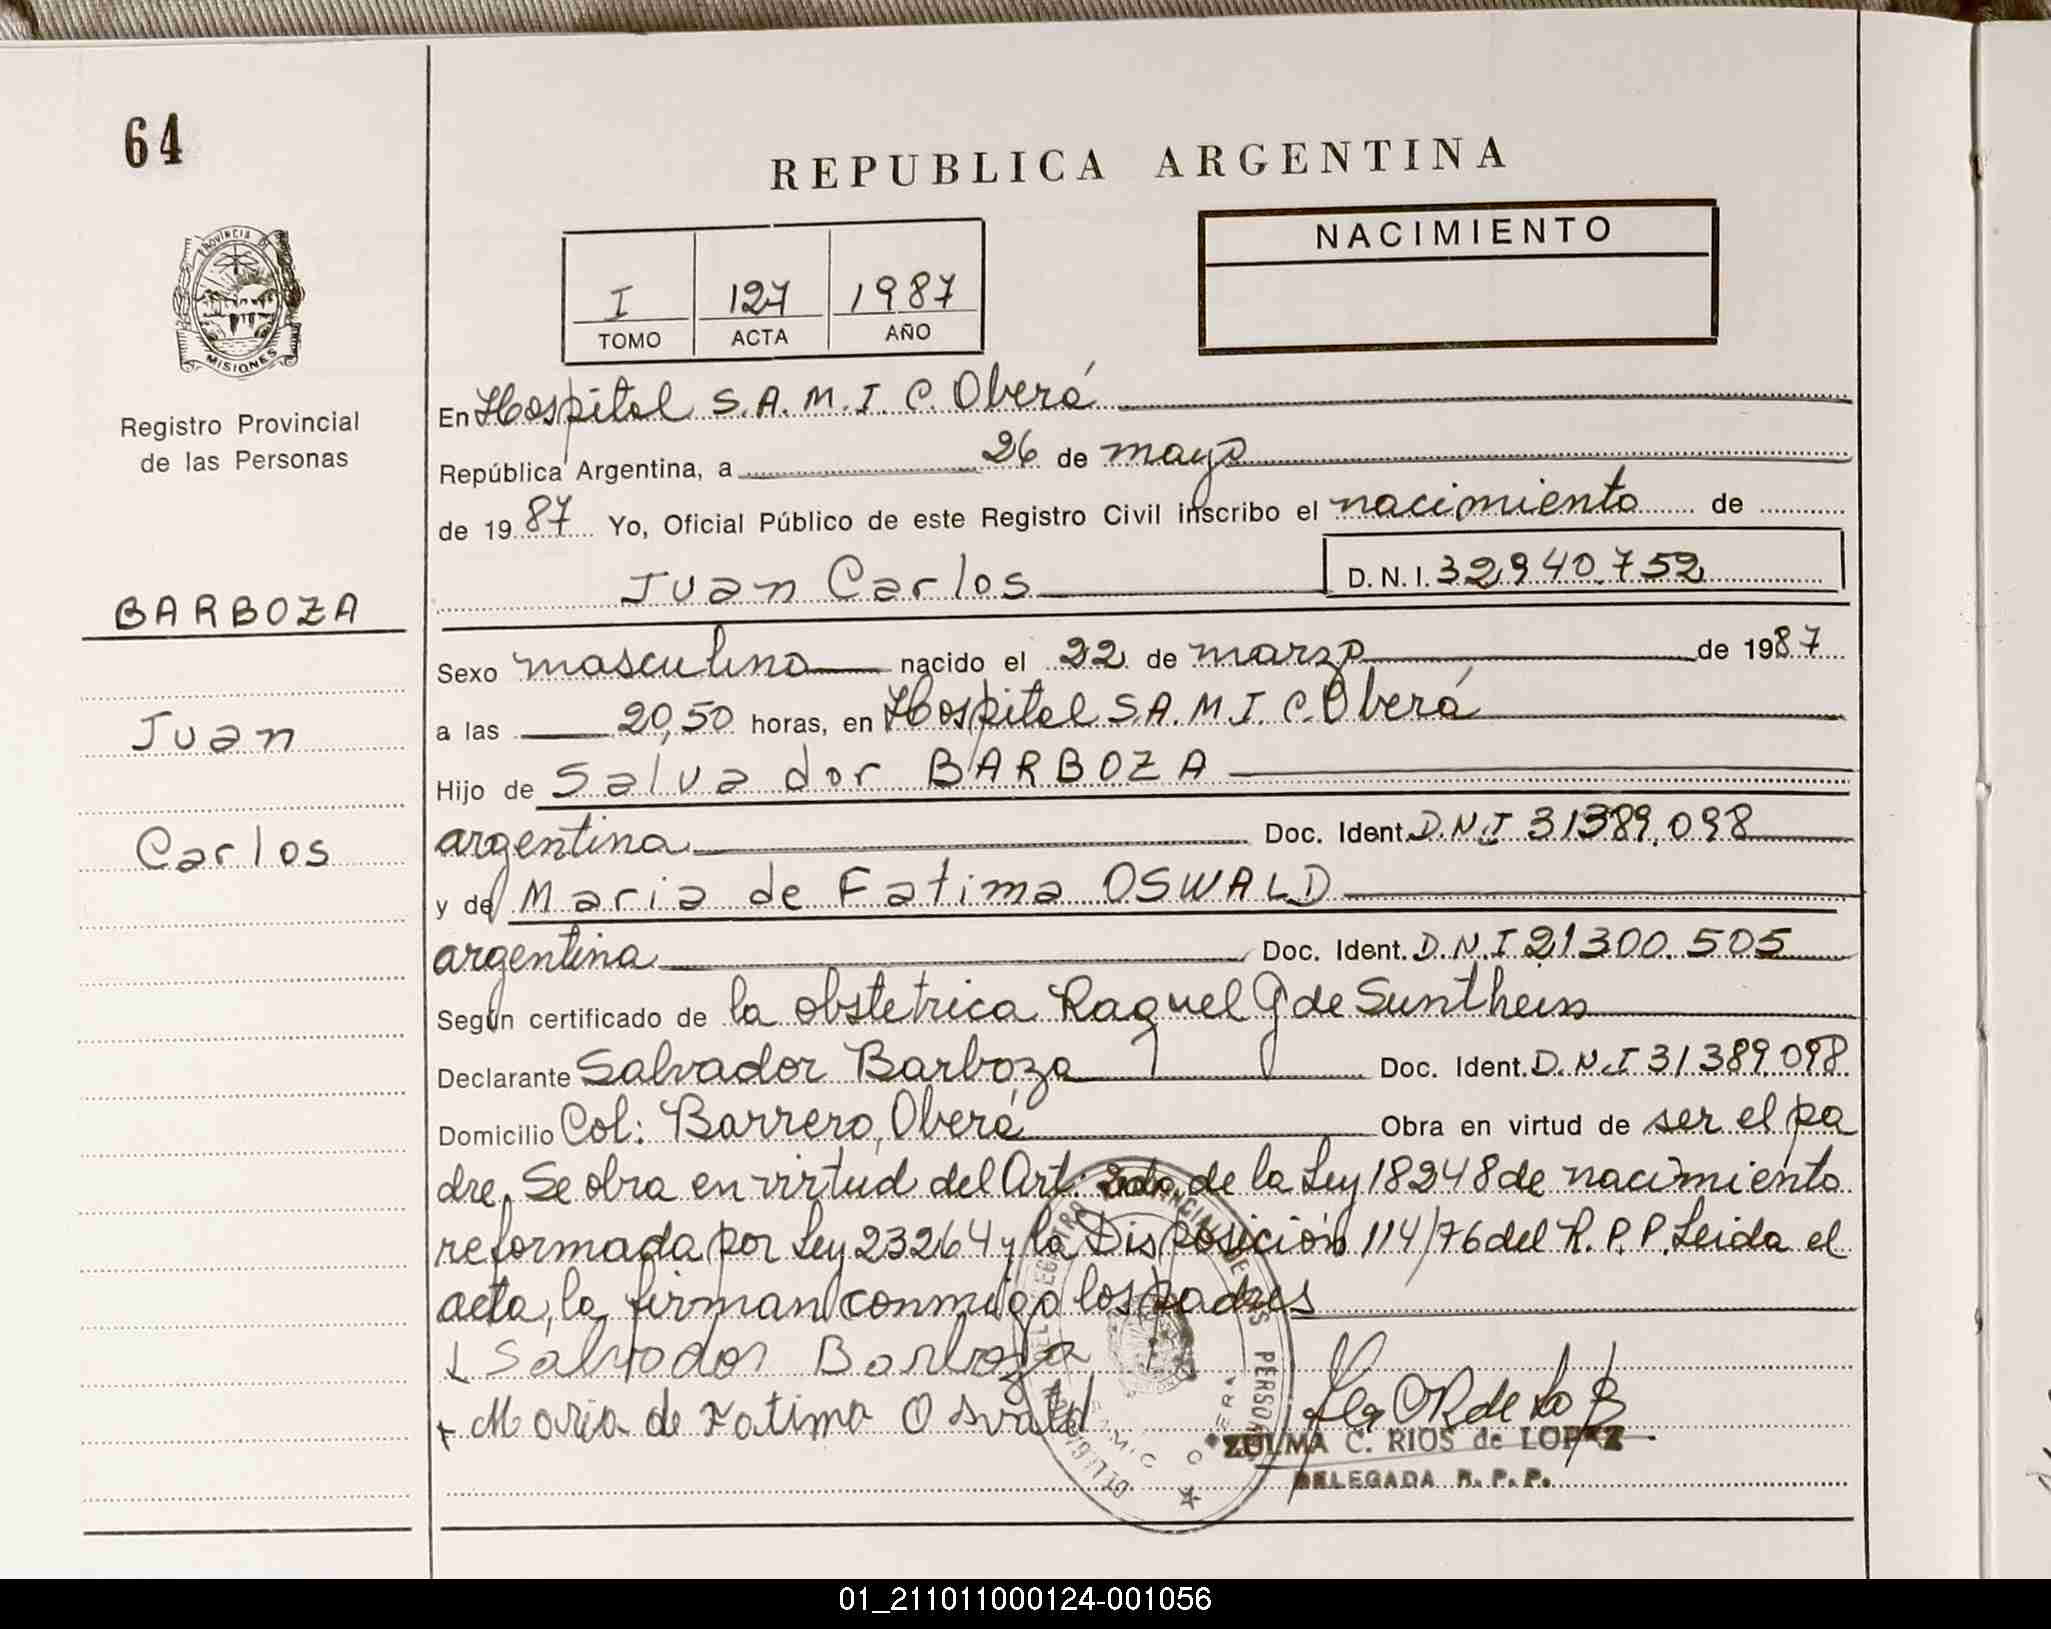 64
REPUBLICA ARGENTINA
PROVINCIA D
MISIONES
Registro Provincial
de las Personas
BARBOZA
Juan
Carlos
I 127 1987
TOMO ACTA AÑO
NACIMIENTO
En Hospital S.A.M.I.C. Oberá
República Argentina, a 26 de mayo
de 1987 Yo, Oficial Público de este Registro Civil inscribo el nacimiento de
Juan Carlos D.N.I. 32940.752
Sexo masculino nacido el 22 de marzo de 1987
a las 20,50 horas, en Hospital S.A.M.I.C. Oberá
Hijo de Salvador BARBOZA
argentina Doc. Ident. D.N.I 31389.098
y de Maria de Fatima OSWALD
argentina Doc. Ident. D.N.I 21300.505
Según certificado de la obstetrica Raquel G de
Declarante Salvador Barboza Doc. Ident. D.N.I 31389.098
Domicilio Col: Barrero, Oberá Obra en virtud de ser el pa
dre. Se obra en virtud del Art. 2do, de la Ley 18248 de nacimiento
reformada por Ley 23264 y la Disposición 114/76 del R.P.P. Leida el
acta, la firman conmigo los padres
Salvador Barboza
Maria de Fatima Osvald
ZULMA C. RIOS de LOPEZ
DELEGADA R. P. P.
01_211011000124-001056